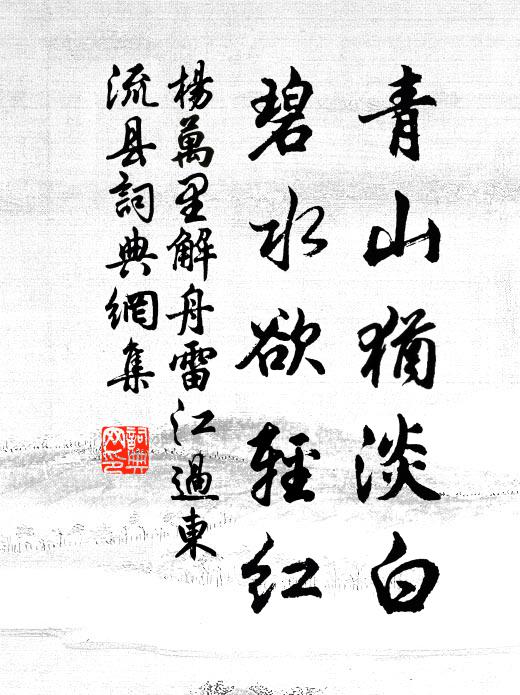 青山猶淡白
碧水欲輕紅
楊萬里解舟雷江過東
流县詞典網集
詞典
网印